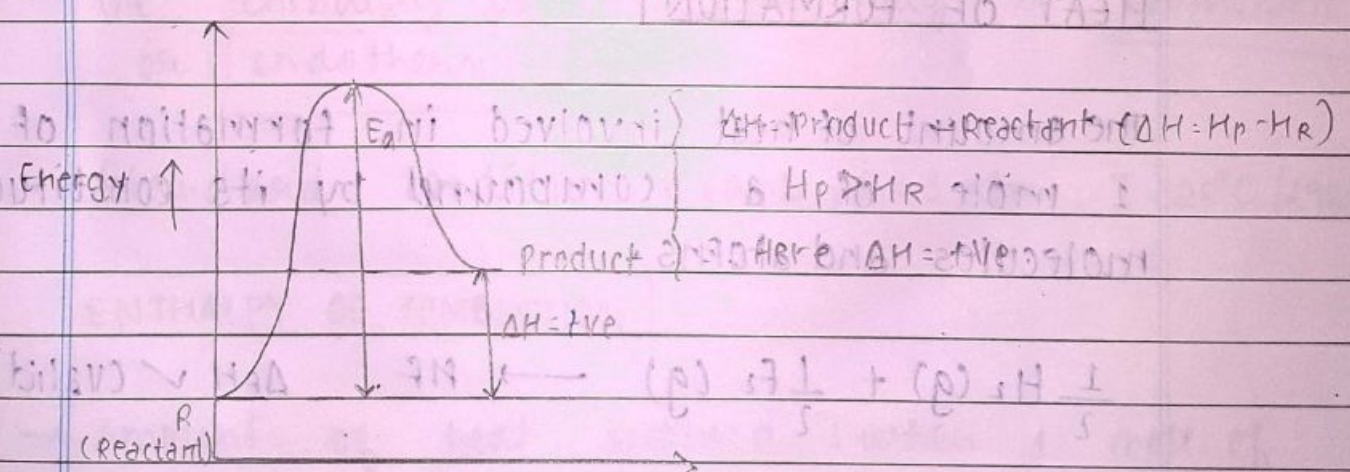 Ea ΔH = Product - Reactant (ΔH = Hp - HR)
Energy ↑ Hp > HR
Product Here ΔH = +ve
ΔH = +ve
R
(Reactant)